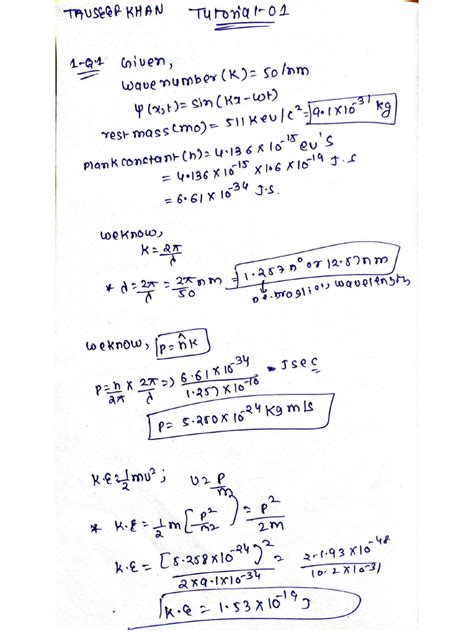 TAUSEEF KHAN Tutorial-01
1-Q.1 Given,
wavenumber (K) = 50/nm
ψ(x,t) = sin(Kx-wt)
rest mass (mo) = 511 Kev/c² = 9.1x10⁻³¹ kg
Plank constant (h) = 4.136 x 10⁻¹⁵ ev's
= 4.136 x 10⁻¹⁵ x 1.6 x 10⁻¹⁹ J.S
= 6.61 x 10⁻³⁴ J.S.
we know,
K = 2π/λ
* λ = 2π/λ = 2π/50 nm = 1.257 A° or 12.57nm
De-broglie's wavelength
we know, p = ħK
P = h/2π x 2π/λ => 6.61 x 10⁻³⁴/1.257 x 10⁻¹⁰ Jsec
P = 5.280 x 10⁻²⁴ Kg m/s
K.E = 1/2 mv²; v = P/m
* K.E = 1/2 m [p²/m²] = p²/2m
K.E = [5.258 x 10⁻²⁴]²/2x9.1x10⁻³⁴ = 21.93 x 10⁻⁴⁸
K.E = 1.53 x 10⁻¹⁹ J